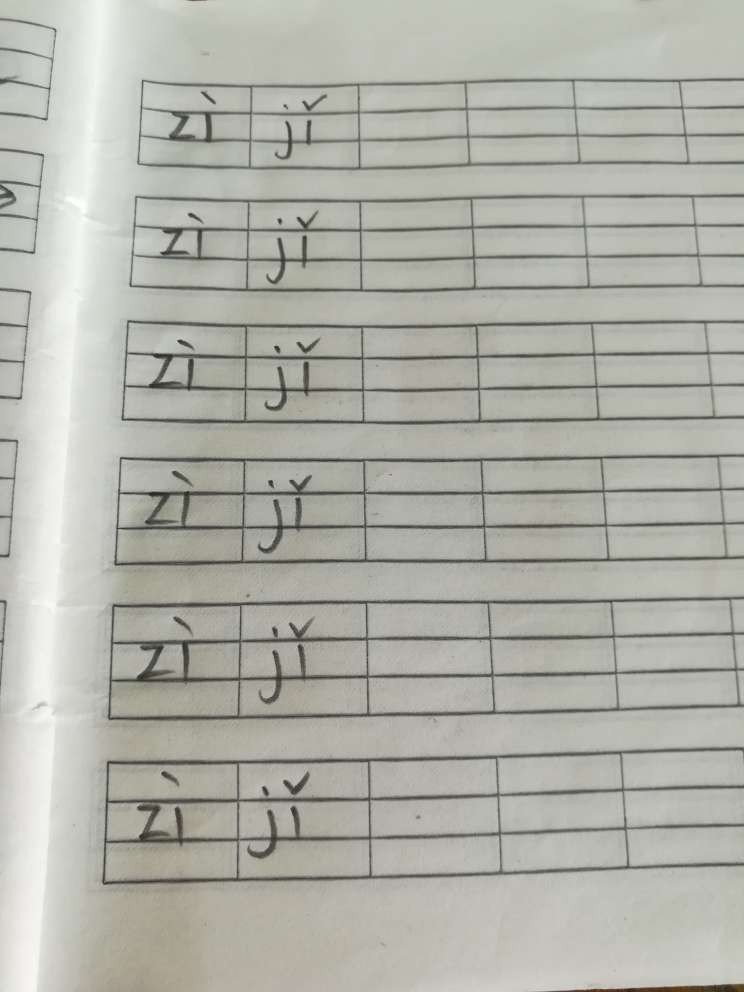 zì jǐ
zì jǐ
zì jǐ
zì jǐ
zì jǐ
zì jǐ